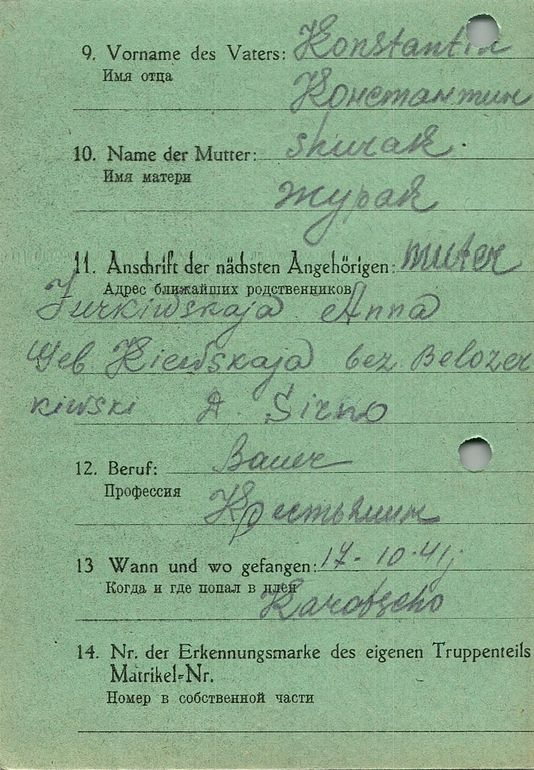 9. Vorname des Vaters: Konstantin
Имя отца
Константин
10. Name der Mutter: shurak.
Имя матери
журак
11. Anschrift der nächsten Angehörigen: muter
Адрес ближайших родственников
Jurkiwskaja Anna
Geb Kiewskaja bez Belozer
kiwski D Sirno
12. Beruf: Bauer
Профессия
Крестьянин
13 Wann und wo gefangen: 17-10.41j
Когда и где попал в плен
14. Nr. der Erkennungsmarke des eigenen Truppenteils
Matrikel-Nr.
Номер в собственной части